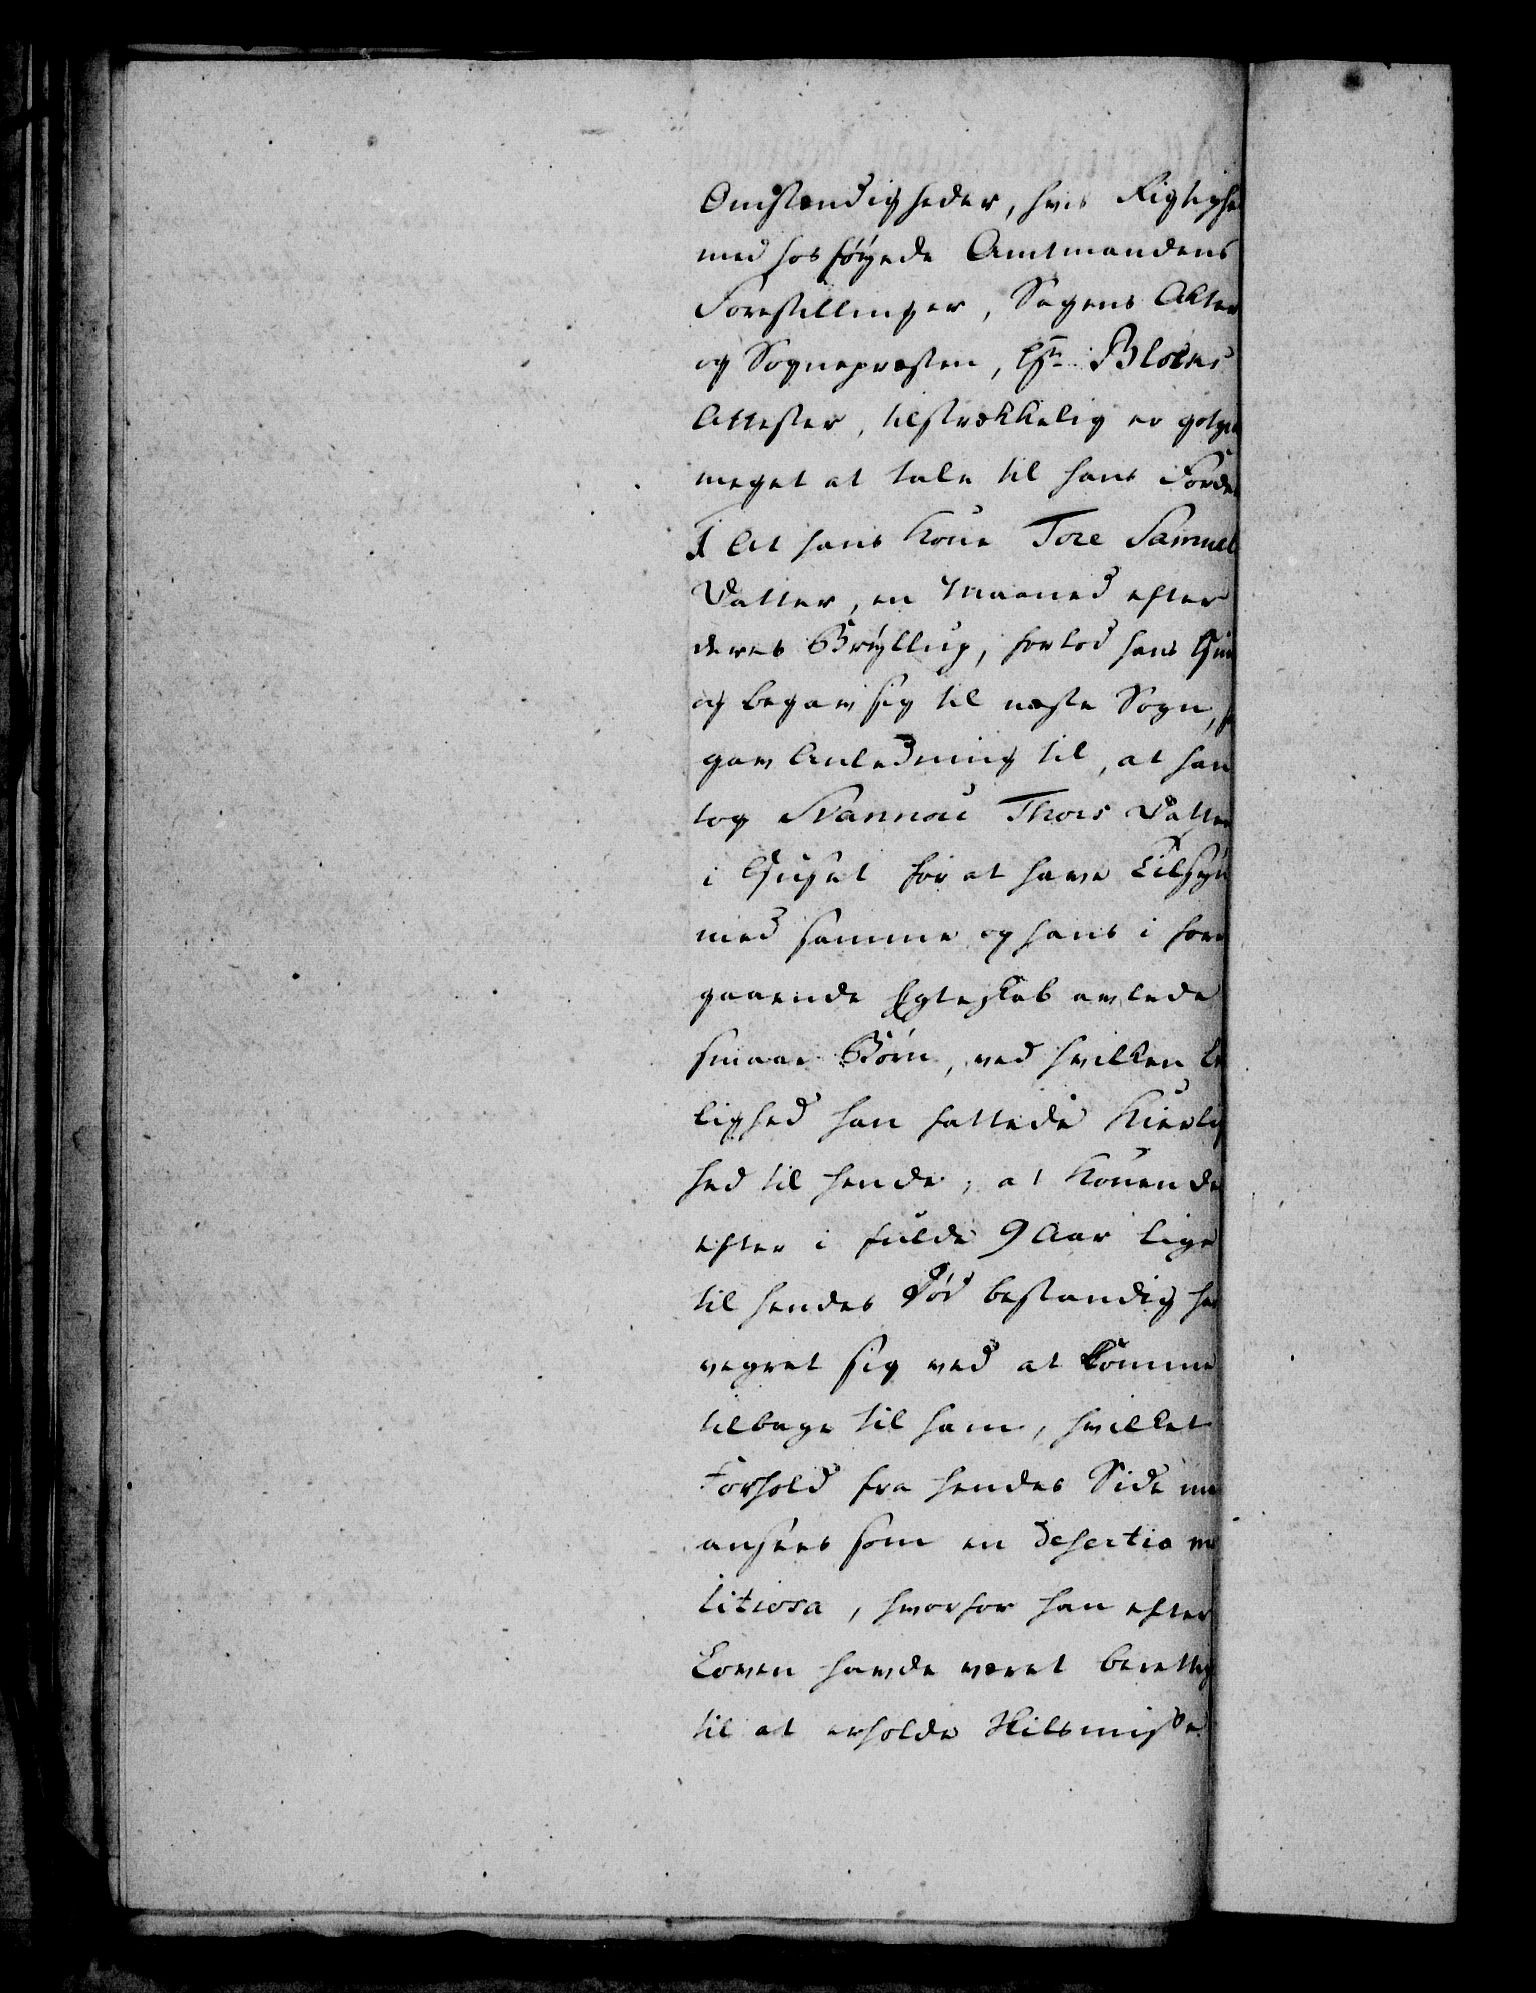 Omstændigheder, hvis Rigtighe
med hosføyede Amtmandens
Forestillinger, Sagens Akter
og Sognepræsten, Hr. Blochs
Attester, tilstrækkelig er
meget at tale til hans Fordel
1 At hans Kone Tore Samuels
Datter, en Maaned efter
deres Bryllup, forlod hans Huus
og begav sig til næste Sogn,
gav Anledning til, at han
tog Svannau Thors Datter
i Huuset for at have Tilsyn
med samme og hans i fore
gaaende Egteskab avlede
smaae Børn, ved hvilken Lei
lighed han fattede Kierlig
hed til hende, at Konen der
efter i fulde 9 Aar lige
til hendes Død bestandig har
vegret sig ved at komme
tilbage til ham, hvilket
Forhold fra hendes Side maa
ansees som en desertio ma
litiosa, hvorfor han efter
Loven havde været berettig
til at erholde Skilsmisse